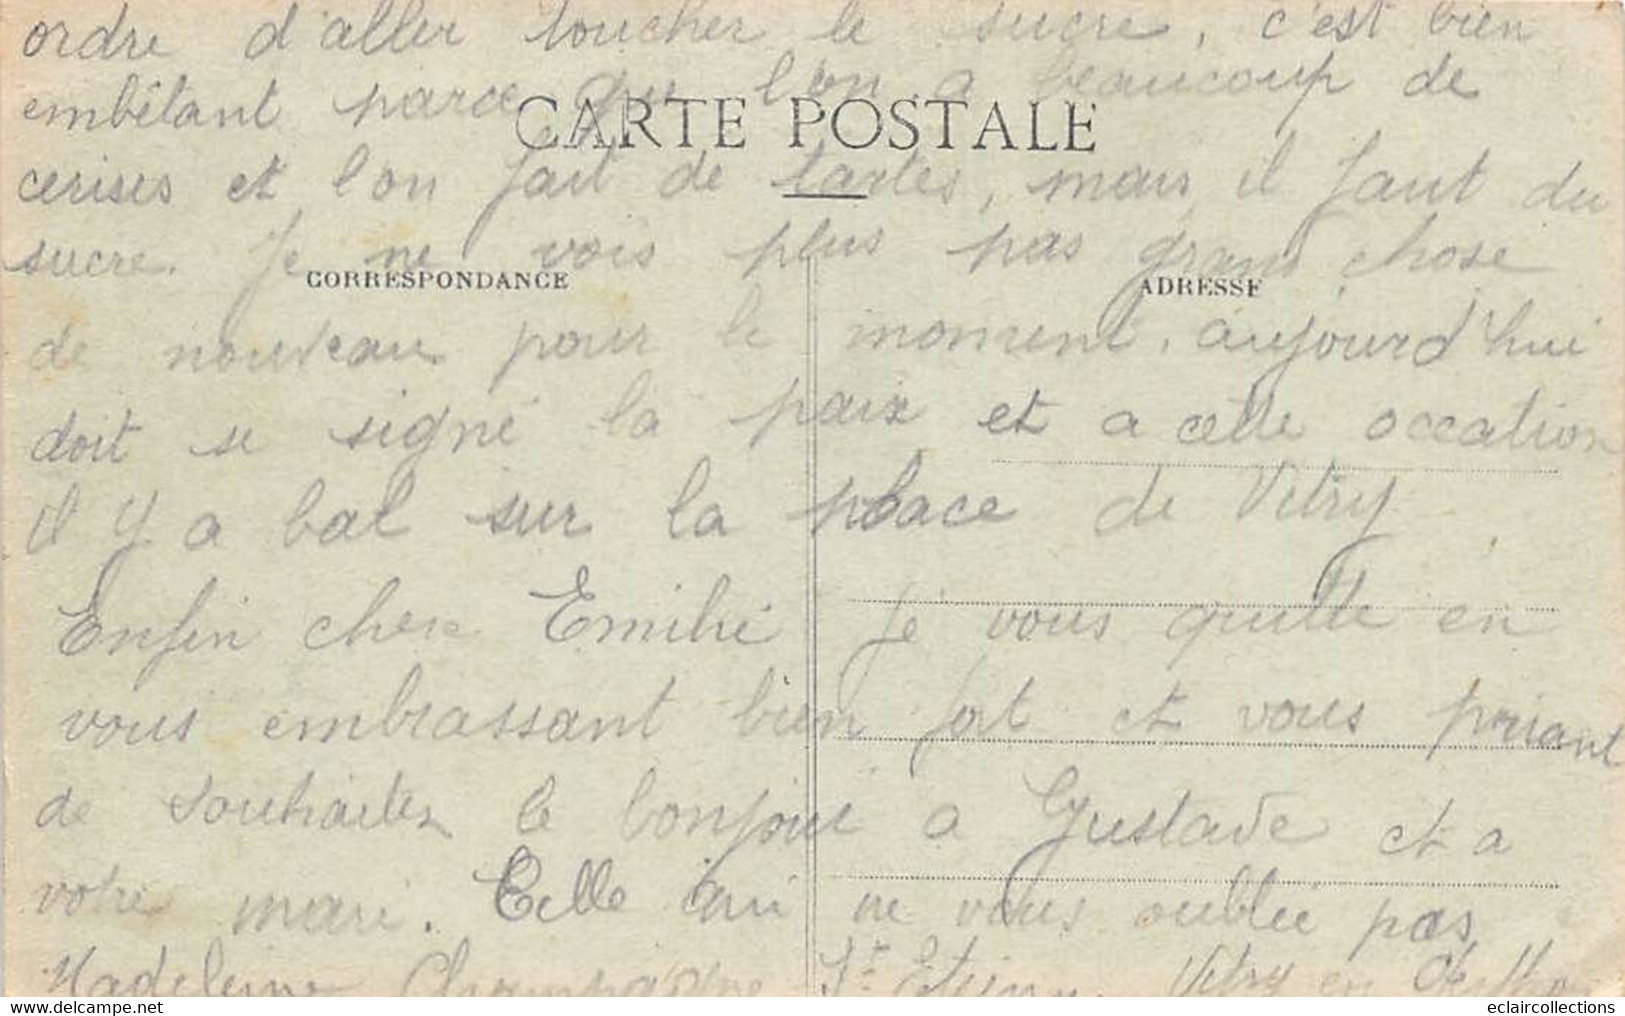 ordre d'aller toucher le sucre, c'est bien
embêtant parce qu l'on a beaucoup de
CARTE POSTALE
cerises et l'on fait de tartes, mais il faut du
sucre. Je ne vois plus pas grand chose
CORRESPONDANCE
ADRESSE
de nouveau pour le moment, aujourd'hui
doit se signé la paix et a cette occation
il y a bal sur la place de Vitry
Enfin chere Emilie je vous quitte en
vous embrassant bien fort et vous priant
de souhaiter le bonjour a Gustave et a
votre mari. Celle qui ne vous oublie pas
Madeleine Champagne St Etienne Vitry en
delcampe.net
eclaircollections